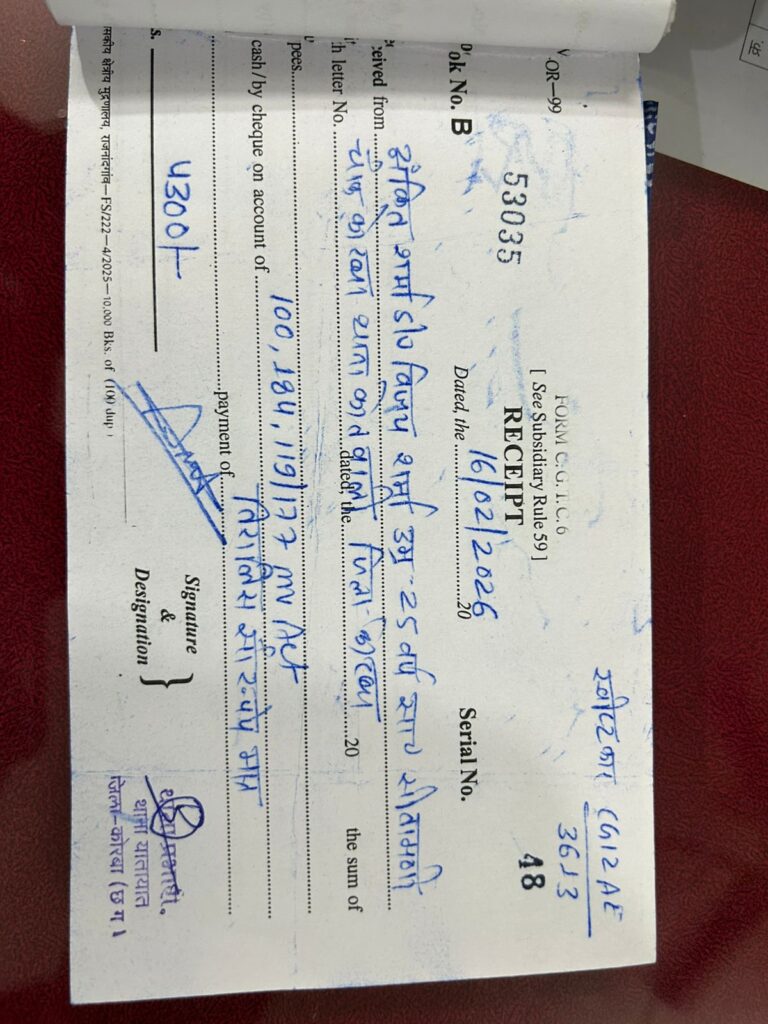 स्वीफ्टकार CG12AE
3613
V-OR—99
FORM C. G. T. C. 6
[ See Subsidiary Rule 59 ]
RECEIPT
ok No. B 53035 Dated, the 16/02/2026 20 Serial No. 48
ceived from अंकित शर्मा S/o विजय शर्मा उम्र-25 वर्ष साO सीतामणी
h letter No. चौक कोरबा थाना कोतवाली dated, the जिला-कोरबा 20 the sum of
pees
cash/by cheque on account of 100, 184, 119/177 mv Act
payment of तिरालिस सौ रूपये मात्र
s. 4300/-
Signature
&
Designation
थाना प्रभारी.
थाना यातायात
जिला-कोरबा (छ ग.)
ासकीय क्षेत्रीय मुद्रणालय, राजनांदगांव—FS/222—4/2025—10,000 Bks. of (100 dup